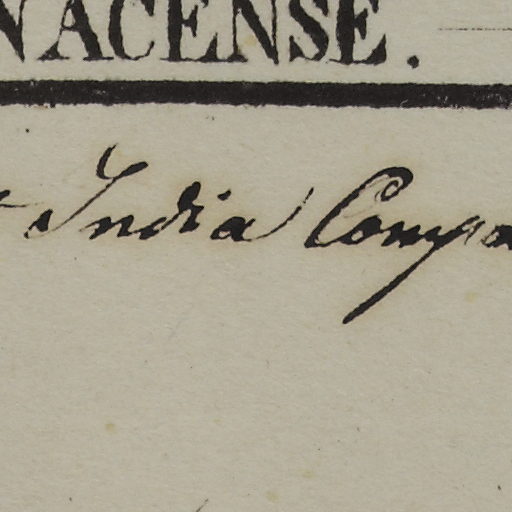 NACENSE.
t India Compa